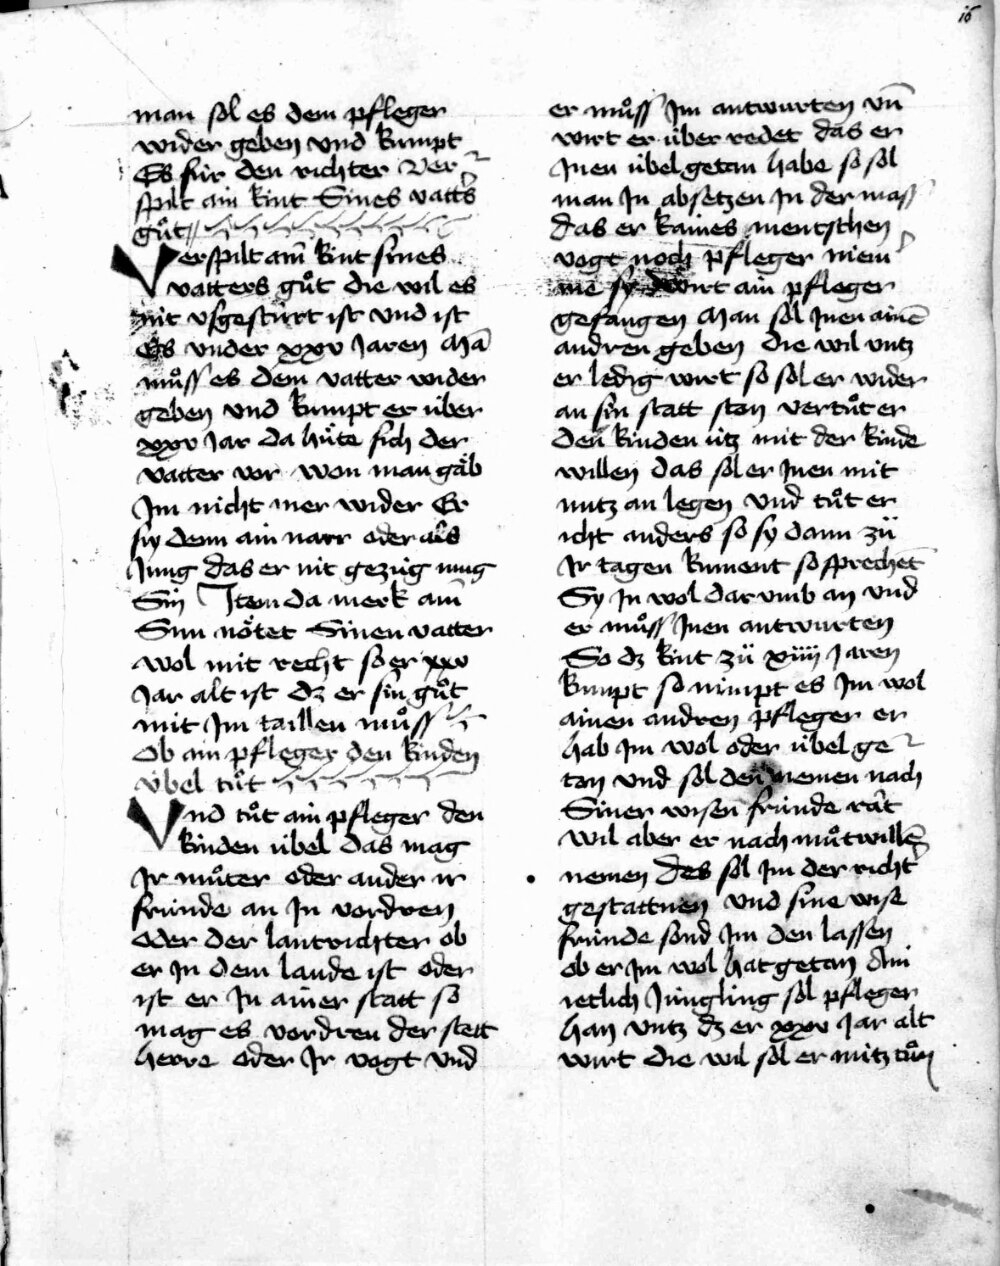 16
man sol es dem pfleger
wider geben vnd kumpt
Es für den richter Ver
spilt ain kint Sines vatters
gůt
Verspilt ain kint sines
vatters gůt die wil es
nit vsgestürt ist vnd ist
Es vnder xxv Jaren Mā
můss es dem vatter wider
geben vnd kumpt er über
xxv Jar da hüte sich der
vatter vor won man gäb
Jm nicht mer wider Er
sy denn ain narr oder als
Jung das er nit gezüg mug
Sin Jtem da merk ain
Sun nötet Sinen vatter
wol mit recht so er xxv
Jar alt ist dz er sin gůt
mit Jm taillen můss
Ob ain pfleger den kinden
v̈bel tůt
Vnd tůt ain pfleger den
kinden übel das mag
Jr můter oder ander ir
fründe an Jn vordren
Oder der lantrichter ob
er Jn dem lande ist oder
ist er Jn ainer statt so
mag es vordren der stett
herre oder Jr vogt vnd
er můss Jm antwurten vn̄
wirt er über redet das er
Jnen übel getan habe so sol
man Jn absetzen Jn der mass
das er kaines mentschen
vogt noch pfleger niem
me sy wirt ain pfleger
gefangen Man sol Jnen ainē
andren geben die wil vntz
er ledig wirt so sol er wider
an sin statt ston vertůt er
den kinden ütz mit der kinde
willen das sol er Jnen mit
nutz an legen vnd tůt er
icht anders so sy dann zü
Jr tagen kument so sprechēt
Sy Jn wol dar vmb an vnd
er můss Jnen antwurten
So dz kint zü xiiij Jaren
kumpt so nimpt es Jm wol
ainen andren pfleger er
hab Jm wol oder übel ge
ton vnd sol den nemen nach
Siner wisen fründe rät
wil aber er nach můtwillē
nemen des sol Jm der richt̓
gestattnen vnd sine wise
fründe sond Jm den lassen
ob er Jm wol hat getan Ain
ietlich Jüngling sol pfleger
han vntz dz er xxv Jar alt
wirt die wil sol er nütz tůn